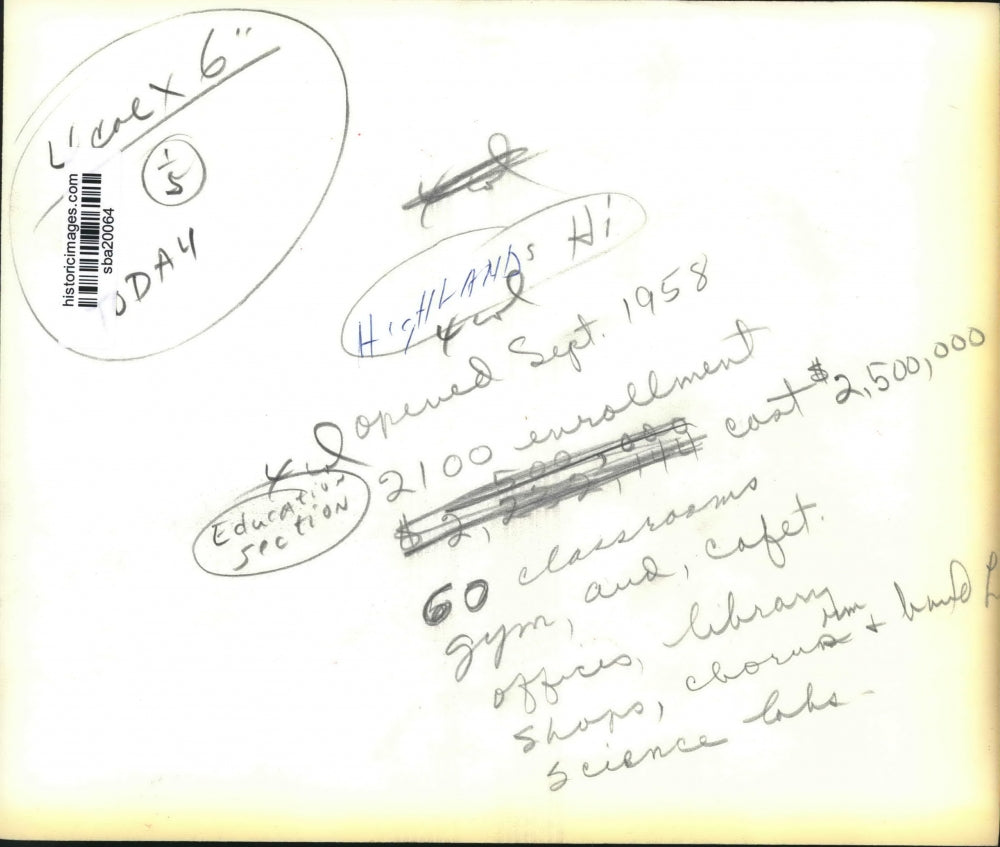 6"
1/5
historicimages.com
sba20064
ODAY
HigHLANDs Hi
4 col
opened Sept. 1958
4 col
2100 enrollment
Education
Section
cost $2,500,000
500,000
$2,222,144
60 classrooms
gym, aud, cafet.
offices, library
shops, chorus rm + band
science labs -